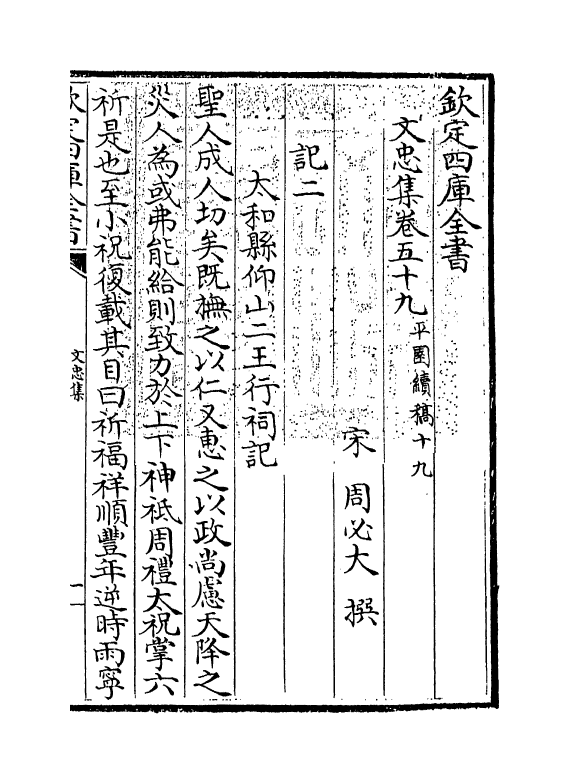 欽定四庫全書
文忠集卷五十九 平園續稿十九
宋 周必大 撰
記二
太和縣仰山二王行祠記
聖人成人切矣既撫之以仁又惠之以政尚慮天降之
災人為或弗能給則致力於上下神祇周禮太祝掌六
祈是也至小祝復載其目曰祈福祥順豐年逆時雨寧
文忠集
一